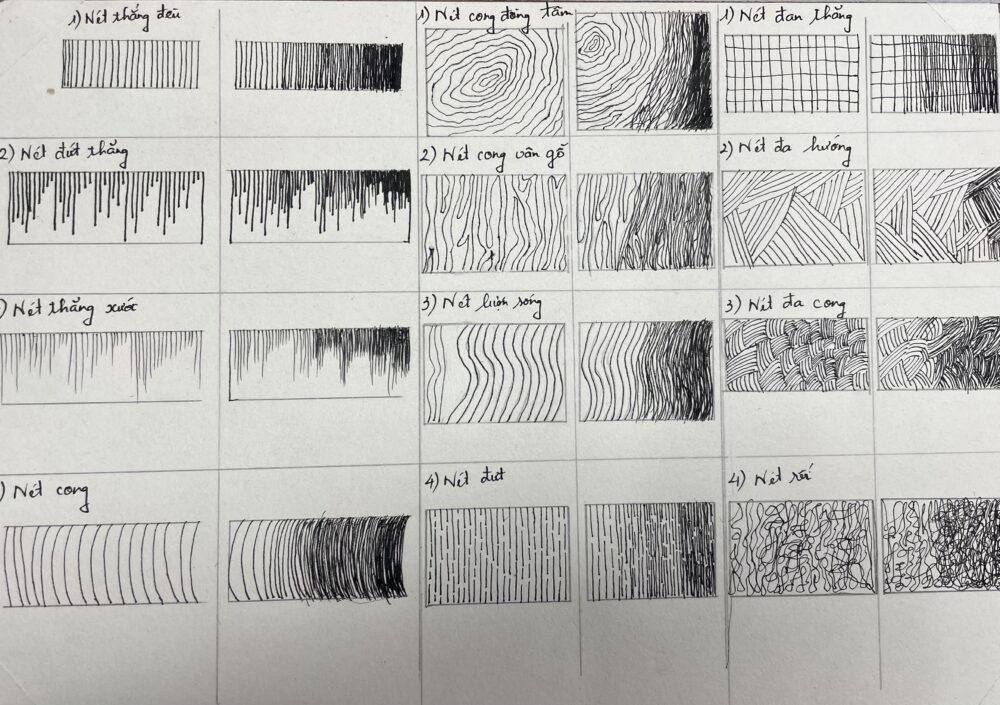 1) Nét thẳng đều
2) Nét đứt thẳng
) Nét thẳng xước
) Nét cong
1) Nét cong đồng tâm
2) Nét cong vân gỗ
3) Nét lượn sóng
4) Nét đứt
1) Nét đan thẳng
2) Nét đa hướng
3) Nét đa cong
4) Nét rối